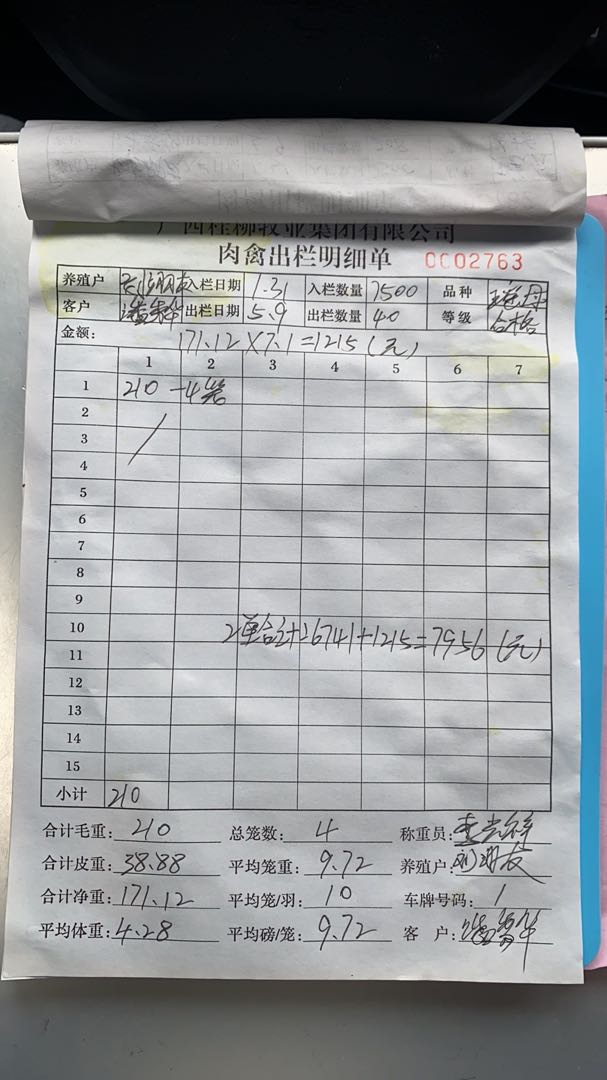 广西桂柳牧业集团有限公司
肉禽出栏明细单 0002763
养殖户 入栏日期 1.31 入栏数量 7500 品种
客户 出栏日期 5.9 出栏数量 40 等级 合格
金额: 171.12×7.1=1215(元)
1 2 3 4 5 6 7
1 210 -4笼
2
3
4
5
6
7
8
9
10 2单合计6741+1215=7956(元)
11
12
13
14
15
小计 210
合计毛重: 210 总笼数: 4 称重员:
合计皮重: 38.88 平均笼重: 9.72 养殖户:
合计净重: 171.12 平均笼/羽: 10 车牌号码: 1
平均体重: 4.28 平均磅/笼: 9.72 客 户: